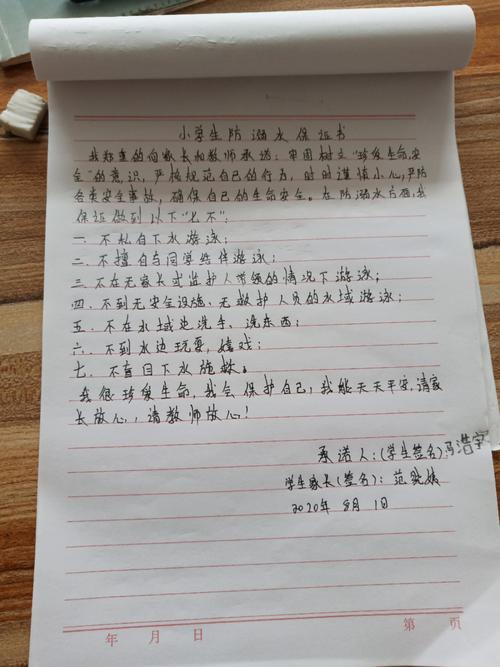 小学生防溺水保证书
我郑重的向家长和教师承诺：牢固树立“珍爱生命，安
全”的意识，严格规范自己的行为，时时谨慎小心，严防
各类安全事故，确保自己的生命安全。在防溺水方面，我
保证做到以下“七不”：
一．不私自下水游泳；
二．不擅自与同学结伴游泳；
三．不在无家长或监护人带领的情况下游泳；
四．不到无安全设施、无救护人员的水域游泳；
五．不在水域边洗手、洗东西；
六．不到水边玩耍，嬉戏；
七．不盲目下水施救。
我很珍爱生命，我会保护自己；我能天天平安，请家
长放心，请教师放心！
承诺人：（学生签名）冯浩宇
学生家长（签名）：范
2020年 8月 1日
年 月 日 第 页